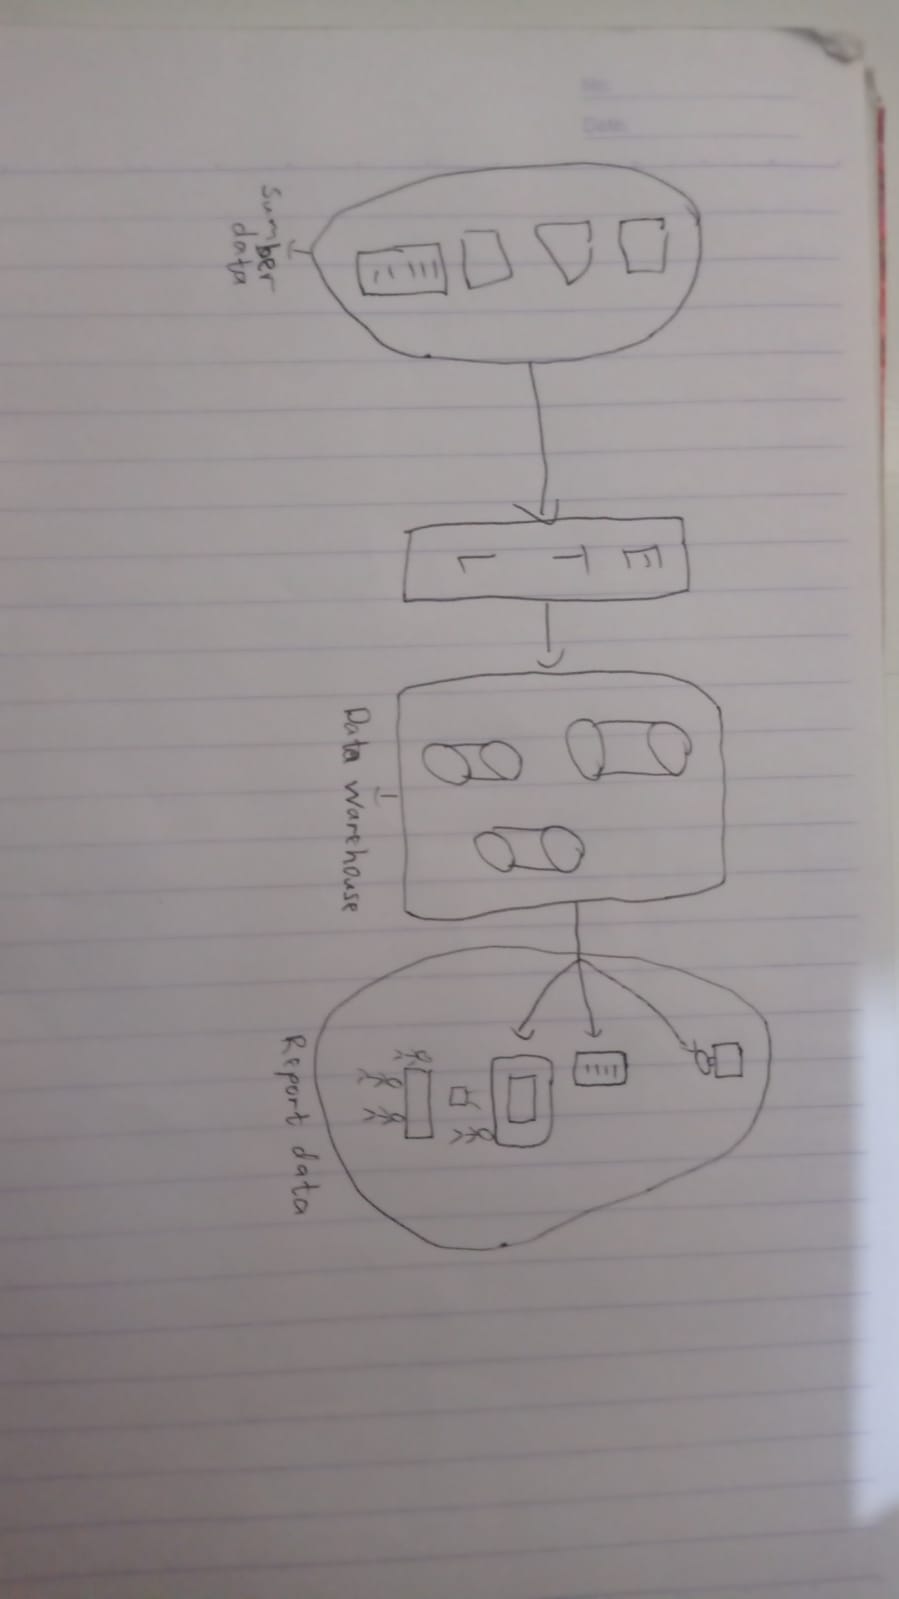 No.
Date
Sumber
data
E
T
L
Data warehouse
Report data